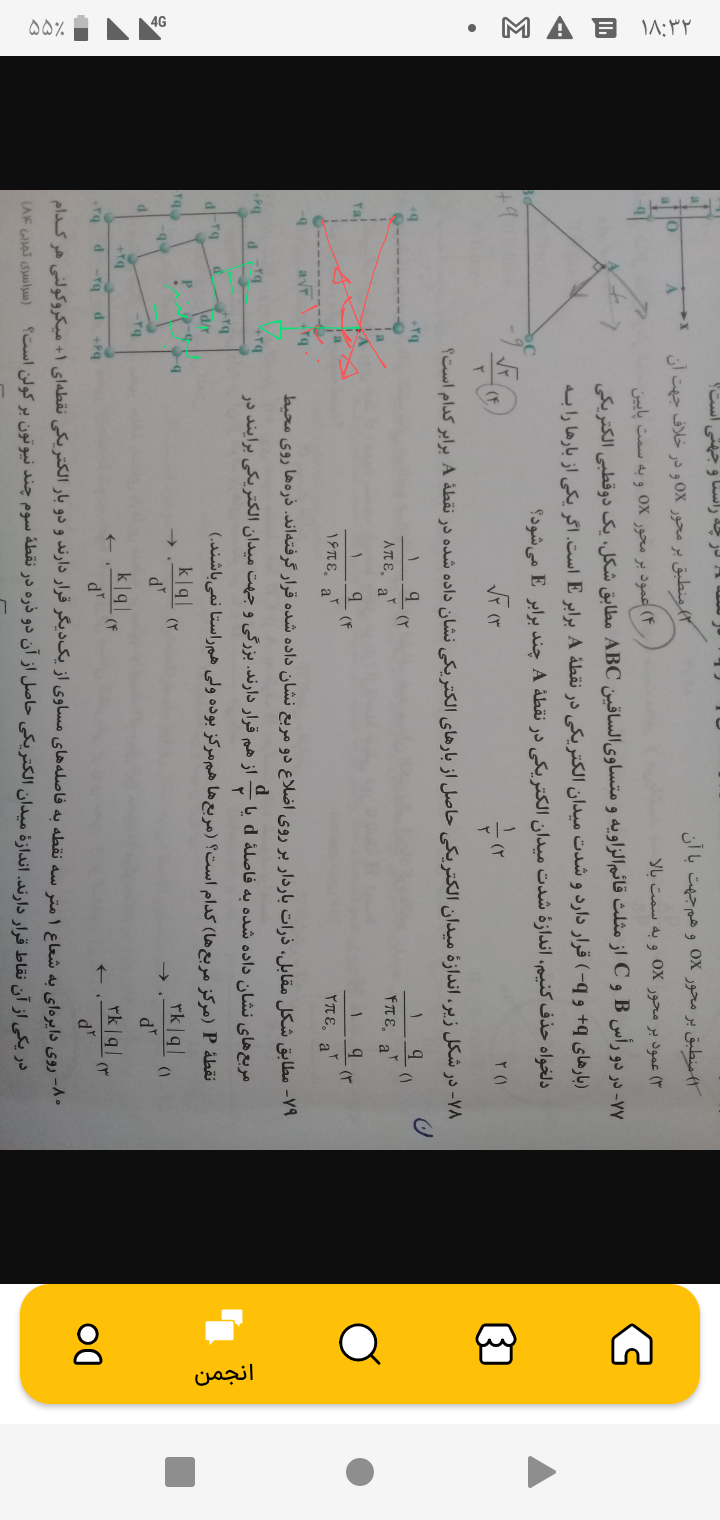 ۱۸:۳۲
4G
۵۵٪
۱) منطبق بر محور OX و هم‌جهت با آن
۲) منطبق بر محور OX و در خلاف جهت آن
۳) عمود بر محور OX و به سمت بالا
۴) عمود بر محور OX و به سمت پایین
۷۷- در دو رأس B و C از مثلث قائم‌الزاویه و متساوی‌الساقین ABC مطابق شکل، یک دوقطبی الکتریکی
(بارهای q+ و q-) قرار دارد و شدت میدان الکتریکی در نقطهٔ A برابر E است. اگر یکی از بارها را به
دلخواه حذف کنیم، اندازهٔ شدت میدان الکتریکی در نقطهٔ A چند برابر E می‌شود؟
۱) ۲
۲) ۱/۲
۳) √۲
۴) √۲/۲
A
B
C
+q
-q
۷۸- در شکل زیر، اندازهٔ میدان الکتریکی حاصل از بارهای الکتریکی نشان داده شده در نقطهٔ A برابر کدام است؟
۱) ۱/۴πε۰ q/a۲
۲) ۱/۸πε۰ q/a۲
۳) ۱/۲πε۰ q/a۲
۴) ۱/۱۶πε۰ q/a۲
۷۹- مطابق شکل مقابل، ذرات باردار بر روی اضلاع دو مربع نشان داده شده قرار گرفته‌اند. ذره‌ها روی محیط
مربع‌های نشان داده شده به فاصلهٔ d یا d/۲ از هم قرار دارند. بزرگی و جهت میدان الکتریکی برایند در
نقطهٔ P (مرکز مربع‌ها) کدام است؟ (مربع‌ها هم‌مرکز بوده ولی هم‌راستا نمی‌باشند.)
۱) ۳k|q|/d۲ ، →
۲) k|q|/d۲ ، →
۳) ۳k|q|/d۲ ، ←
۴) k|q|/d۲ ، ←
۸۰- روی دایره‌ای به شعاع ۱ متر سه نقطه به فاصله‌های مساوی از یک‌دیگر قرار دارند و دو بار الکتریکی نقطه‌ای ۱+ میکروکولنی هر کدام
در یکی از آن نقاط قرار دارند. اندازهٔ میدان الکتریکی حاصل از آن دو ذره در نقطهٔ سوم چند نیوتون بر کولن است؟
انجمن